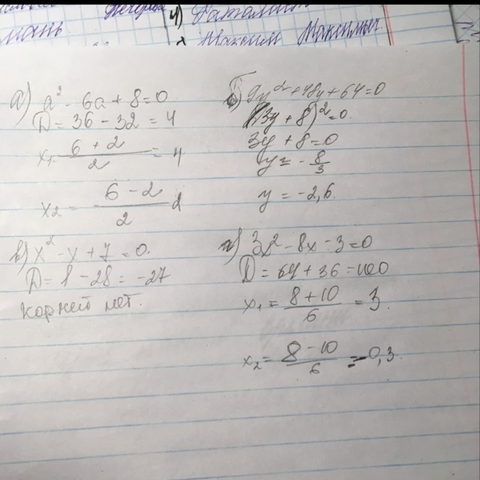 4)
Максим Максимы
а) a² - 6a + 8 = 0
D = 36 - 32 = 4
x₁ = (6 + 2)/2 = 4
x₂ = (6 - 2)/2 = 2
б) 9y² + 48y + 64 = 0
(3y + 8)² = 0
3y + 8 = 0
y = -8/3
y = -2,6
в) x² - x + 7 = 0
D = 1 - 28 = -27
корней нет.
г) 3x² - 8x - 3 = 0
D = 64 + 36 = 100
x₁ = (8 + 10)/6 = 3
x₂ = (8 - 10)/6 = -0,3